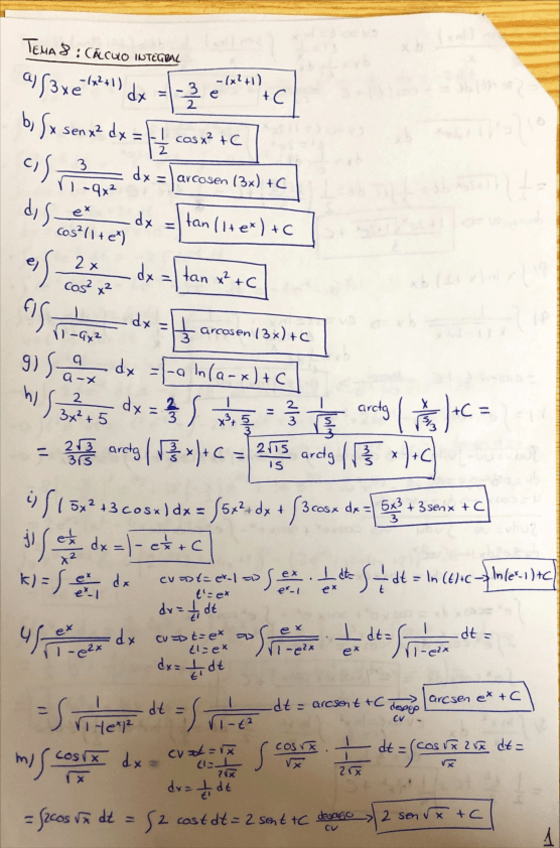 TEMA 8: CÁLCULO INTEGRAL
a) ∫3xe^-(x²+1) dx = -3/2 e^-(x²+1) + C
b) ∫x sen x² dx = -1/2 cos x² + C
c) ∫ 3/√(1-9x²) dx = arcosen (3x) + C
d) ∫ e^x/cos²(1+e^x) dx = tan (1+e^x) + C
e) ∫ 2x/cos² x² dx = tan x² + C
f) ∫ 1/√(1-9x²) dx = 1/3 arcosen (3x) + C
g) ∫ a/(a-x) dx = -a ln(a-x) + C
h) ∫ 2/(3x²+5) dx = 2/3 ∫ 1/(x²+5/3) = 2/3 1/√(5/3) arctg (x/√(5/3)) + C =
= 2√3/3√5 arctg (√(3/5) x) + C = 2√15/15 arctg (√(3/5) x) + C
i) ∫(5x²+3cosx) dx = ∫5x² dx + ∫3cosx dx = 5x³/3 + 3senx + C
j) ∫ e^(1/x)/x² dx = -e^(1/x) + C
k) = ∫ e^x/(e^x-1) dx cv ⇒ t = e^x-1 ⇒ ∫ e^x/(e^x-1) · 1/e^x dt = ∫ 1/t dt = ln (t)+C → ln(e^x-1)+C
t' = e^x
dx = 1/t' dt
l) ∫ e^x/√(1-e^2x) dx cv ⇒ t = e^x ⇒ ∫ e^x/√(1-e^2x) · 1/e^x dt = ∫ 1/√(1-e^2x) dt =
t' = e^x
dx = 1/t' dt
= ∫ 1/√(1-(e^x)²) dt = ∫ 1/√(1-t²) dt = arcsen t + C → deshago cv arcsen e^x + C
m) ∫ cos√x/√x dx = cv ⇒ t = √x ∫ cos√x/√x · 1/(1/2√x) dt = ∫ cos√x 2√x/√x dt =
t' = 1/2√x
dx = 1/t' dt
= ∫2cos√x dt = ∫2 cost dt = 2 sent + C → deshago cv 2 sen√x + C
1